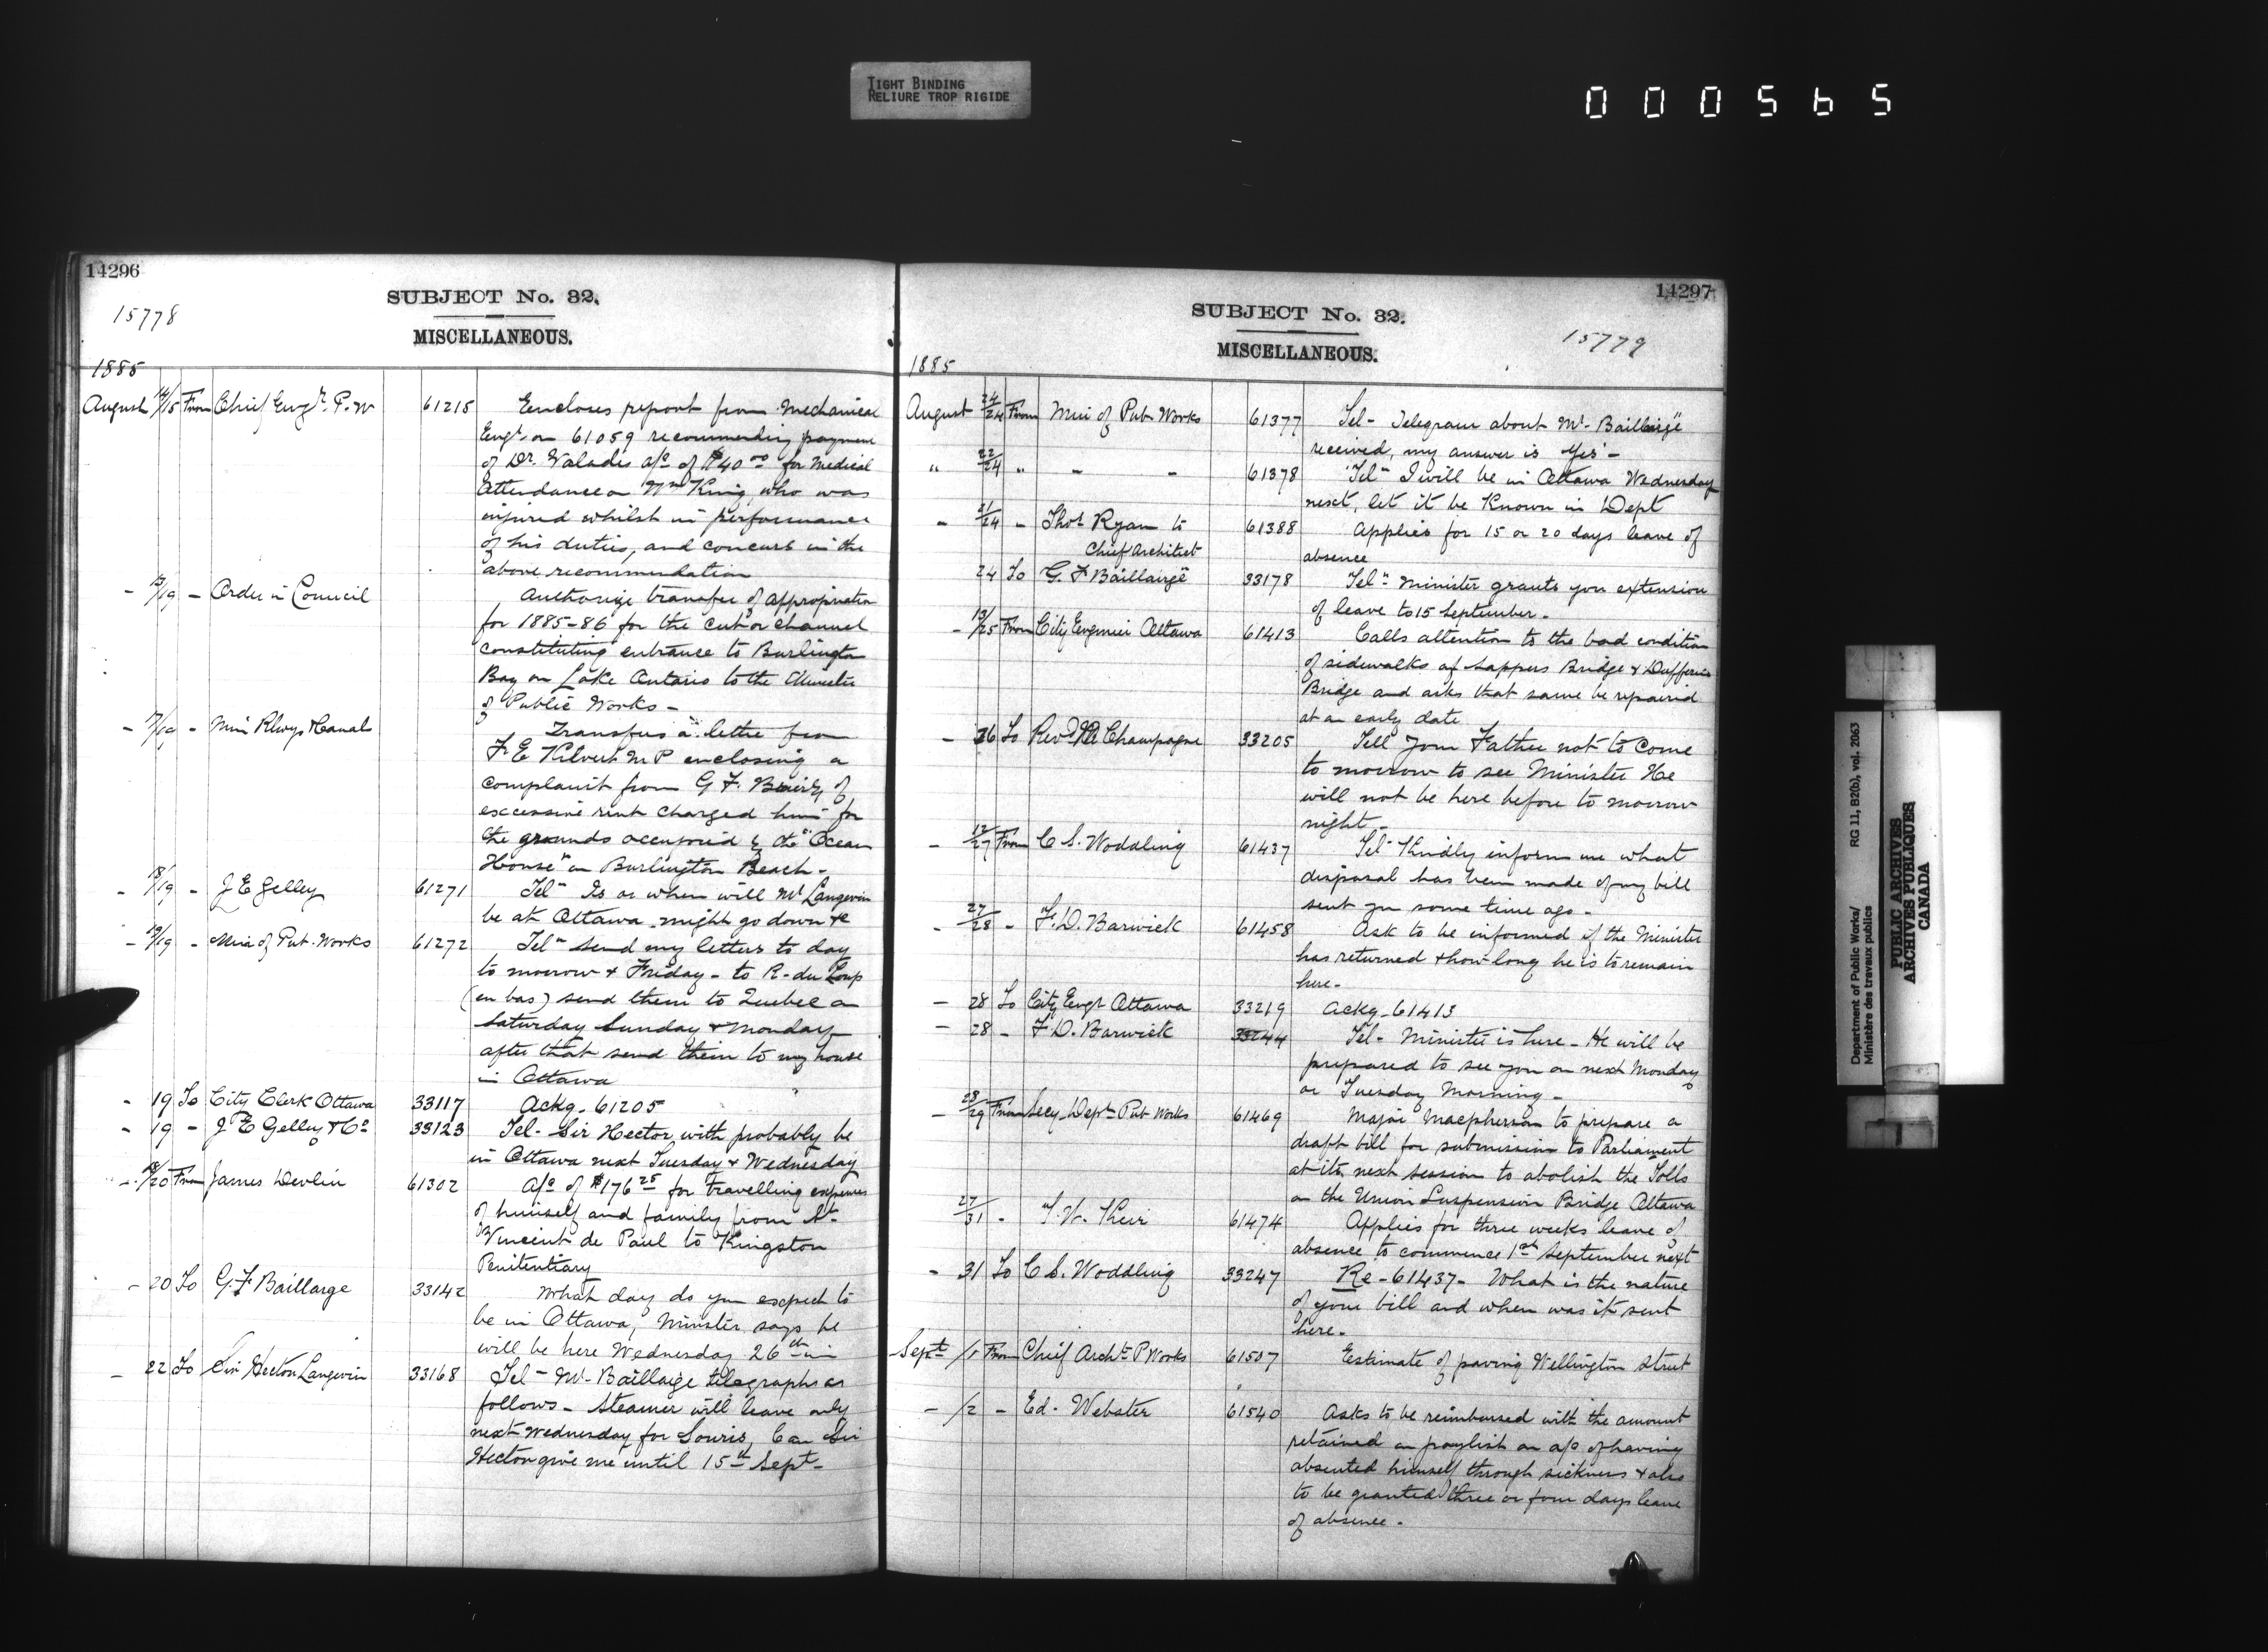 TIGHT BINDING
RELIURE TROP RIGIDE
000565
14296
SUBJECT No. 32.
15778
MISCELLANEOUS.
1885
August 14/15 From Chief Engr. P. W 61215 Encloses report from Mechanical
Engr. on 61059 recommending payment
of Dr. Valades a/c of $40 00 for Medical
Attendance on Wm King, who was
injured whilst in performance
of his duties, and concurs in the
above recommendation
- 13/19 - Order in Council Authorize transfer of appropriation
for 1885-86 for the cut or channel
constituting entrance to Burlington
Bay on Lake Ontario to the Minister
of Public Works -
- 17/19 - Min Rlwys & Canals Transfers a letter from
F. E Kilvert M P enclosing a
complaint from G F. of
excessive rent charged him for
the grounds occupied by the "Ocean
House" on Burlington Beach -
- 18/19 - J E Gelley 61271 Tel - Is or when will Mr Langevin
be at Ottawa. might go down &c
- 19/19 - Min of Pub. Works 61272 Tel - Send my letters to day
to morrow & Friday - to R. du Loup
(en bas) send them to Quebec on
Saturday Sunday & Monday
after that send them to my house
in Ottawa
- 19 To City Clerk Ottawa 33117 Ackg. 61205
- 19 - J E Gelley & Co 33123 Tel - Sir Hector with probably be
in Ottawa next Tuesday & Wednesday
- 18/20 From James Devlin 61302 A/c of $176 25 for travelling expenses
of himself and family from St.
Vincent de Paul to Kingston
Penitentiary
- 20 To G. F Baillarge 33142 What day do you expect to
be in Ottawa, Minister says he
will be here Wednesday 26th in
- 22 To Sir Hector Langevin 33168 Tel - Mr. Baillarge telegraphs as
follows - Steamer will leave only
next Wednesday for Souris, Can Sir
Hector give me until 15th Sept -
14297
SUBJECT No. 32.
15779
MISCELLANEOUS.
1885
August 24/24 From Min of Pub. Works 61377 Tel - Telegram about Mr. Baillairgé
received, my answer is Yes -
" 22/24 " - - 61378 Tel - I will be in Ottawa Wednesday
next, let it be Known in Dept
- 21/24 - Thos Ryan to 61388 Applies for 15 or 20 days leave of
Chief Architect absence
24 To G. F Baillairgé 33178 Tel - Minister grants you extension
of leave to 15 September.
- 13/25 From City Engineer Ottawa 61413 Calls attention to the bad condition
of sidewalks of Sappers Bridge & Dufferin
Bridge and asks that same be repaired
at an early date
- 26 To Revd Champagne 33205 Tell your Father not to come
to morrow to see Minister He
will not be here before to morrow
night -
- 12/27 From C S. Woddling 61437 Tel - Kindly inform me what
disposal has been made of my bill
sent you some time ago.
- 27/28 - F. D. Barwick 61458 Ask to be informed if the Minister
has returned & how long he is to remain
here.
- 28 To City Engr Ottawa 33219 Ackg. 61413
- 28 - F. D. Barwick 33244 Tel - Minister is here - He will be
prepared to see you on next Monday
or Tuesday Morning -
- 28/29 From Secy Dept Pub Works 61469 Major Macpherson to prepare a
draft bill for submission to Parliament
at its next session to abolish the Tolls
on the Union Suspension Bridge Ottawa
27/31 - T. W. Keir 61474 Applies for three weeks leave of
absence to commence 1st September next
- 31 To C S. Woddling 33247 Re - 61437 - What is the nature
of your bill and when was it sent
here.
Sept /1 From Chief Archt P Works 61507 Estimate of paving Wellington Street
- /2 - Ed. Webster 61540 Asks to be reimbursed with the amount
retained on paylist on a/c of having
absented himself through sickness & also
to be granted three or four days leave
of absence.
Department of Public Works/ RG 11, B2(b), vol. 2063
Ministère des travaux publics
PUBLIC ARCHIVES
ARCHIVES PUBLIQUES
CANADA